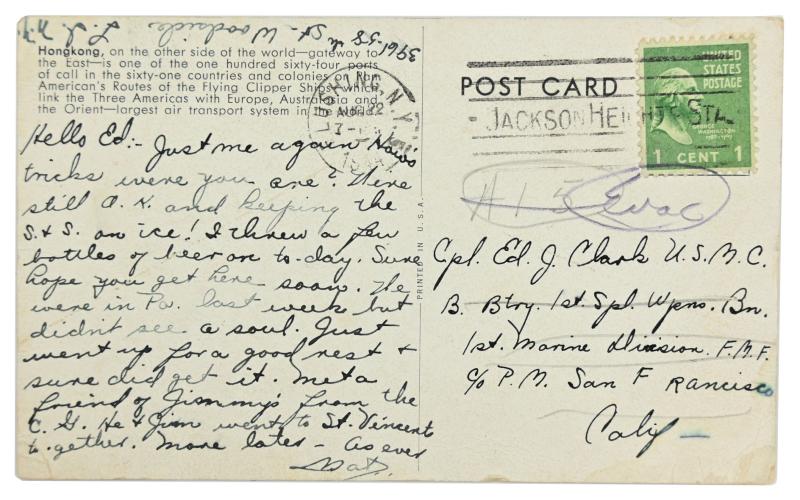 3961-58 th St. Woodside, L. I. N.Y.
Hongkong, on the other side of the world—gateway to
the East—is one of the one hundred sixty-four ports
of call in the sixty-one countries and colonies on Pan
American's Routes of the Flying Clipper Ships, which
link the Three Americas with Europe, Australasia and
the Orient—largest air transport system in the world.
Hello Ed:- Just me again. How's
tricks were you are? Were
still O.K. and keeping the
S. & S. on ice! I threw a few
bottles of beer on to-day. Sure
hope you get here soon. We
were in Pa. last week but
didn't see a soul. Just
went up for a good rest +
sure did get it. Met a
friend of Jimmy's from the
C. G. He & Jim went to St. Vincent
to-gether. More later - As ever
PRINTED IN U.S.A.
FLUSHING, N.Y.
AUG 22
POST CARD
JACKSON HEIGHTS STA.
UNITED
STATES
POSTAGE
GEORGE
WASHINGTON
1 CENT 1
Evac
Cpl. Ed. J. Clark U.S.M.C.
B. Btry. 1st. Spl. Wpns. Bn.
1st. Marine Division. F.M.F.
c/o P.M. San Francisco
Calif